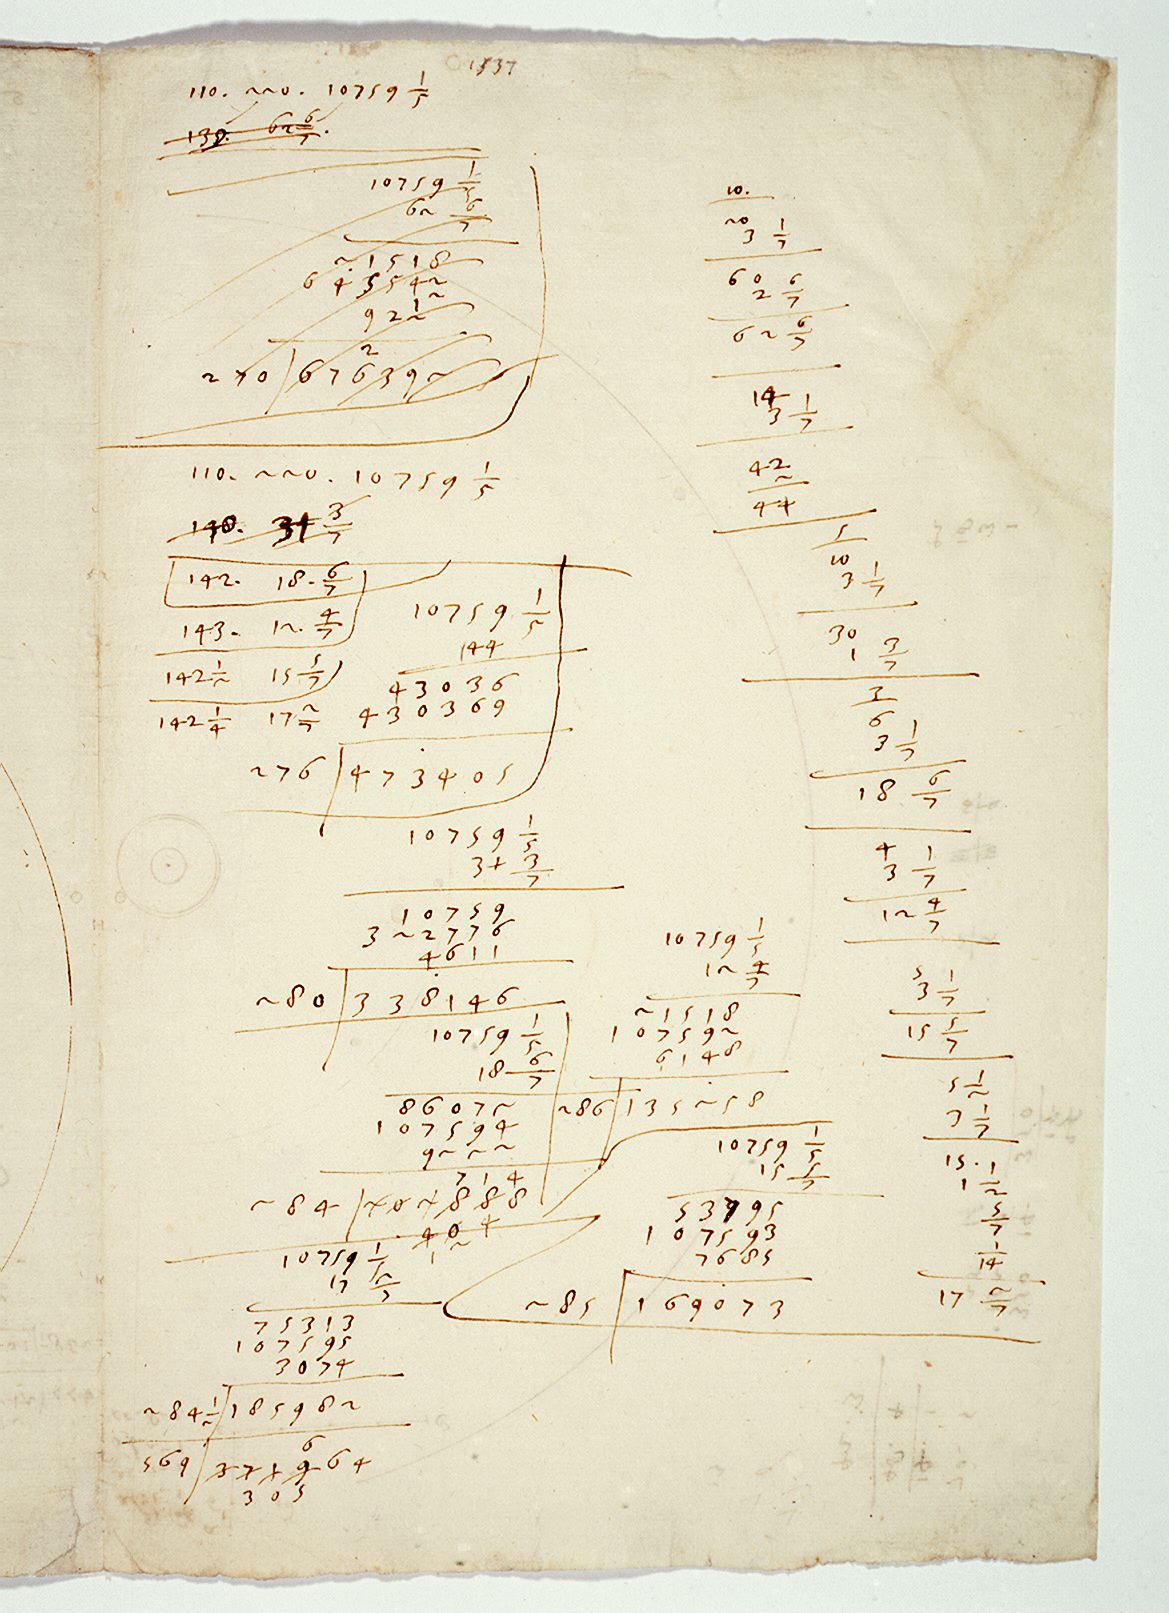 1537
110. 220. 10759 1/5
130. 62 6/7.
10759 1/5
62 6/7
21518
645542
9222
2
270 | 676392
110. 220. 10759 1/5
140. 31 3/7
142. 18. 6/7
143. 12. 4/7
142 1/2 15 5/7
142 1/4 17 2/7
10759. 1/5
144
43036
430369
276 | 473405
10759 1/5
31 3/7
10759
322776
4611
280 | 338146
10759 1/5
18 6/7
86072
107594
9222
714
284 | 202888
404
12
10759 1/5
17 2/7
75313
107595
3074
284 1/2 | 185982
6
569 | 371964
305
10759 1/5
12 4/7
21518
107592
6148
286 | 135258
10759 1/5
15 5/7
53795
107593
7685
285 | 169073
10.
20
3 1/7
60
2 6/7
62 6/7
14
3 1/7
42
2
44
5
10
3 1/7
30
1 3/7
3
6
3 1/7
18 6/7
4
3 1/7
12 4/7
5
3 1/7
15 5/7
5 1/2
3 1/7
15. 1
1 1/2
5/7
1/14
17 2/7